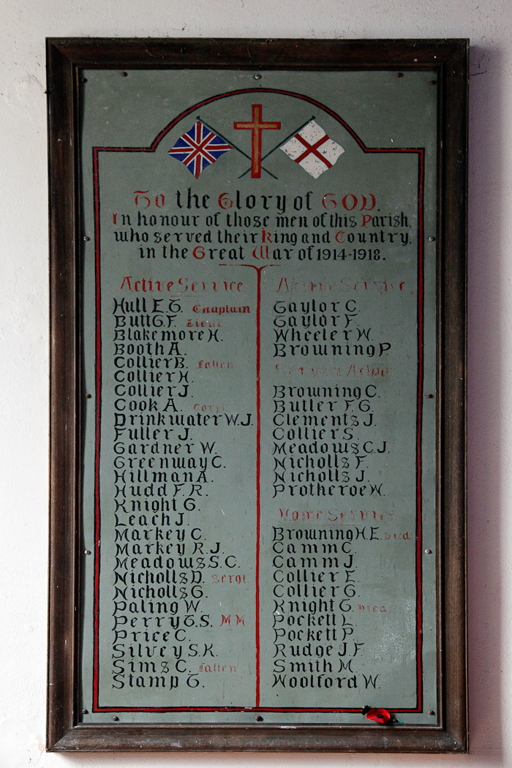 To the Glory of GOD.
In honour of those men of this Parish,
who served their King and Country,
in the Great War of 1914-1918.
Active Service
Hull E.G. Chaplain
Butt G.F. Lieut
Blakemore H.
Booth A.
Collier B. Fallen
Collier H.
Collier J.
Cook A. Corp
Drinkwater W.J.
Fuller J.
Gardner W.
Greenway C.
Hillman A.
Hudd F.R.
Knight G.
Leach J.
Markey C.
Markey R.J.
Meadows S.C.
Nicholls D. Sergt.
Nicholls G.
Paling W.
Perry E.S. MM
Price C.
Silvey S.K.
Sims C. Fallen
Stamp G.
Active Service
Gaylor C.
Gaylor F.
Wheeler W.
Browning P
Service
Browning C.
Butler F.G.
Clements J.
Collier S.
Meadows C.J.
Nicholls F.
Nicholls J.
Protheroe W.
Home Service
Browning H.E. Died
Camm C.
Camm J.
Collier E.
Collier G.
Knight G. Died
Pockett L.
Pockett P.
Rudge J.F.
Smith M.
Woolford W.